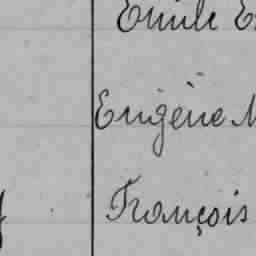 Emile E
Eugène M
François